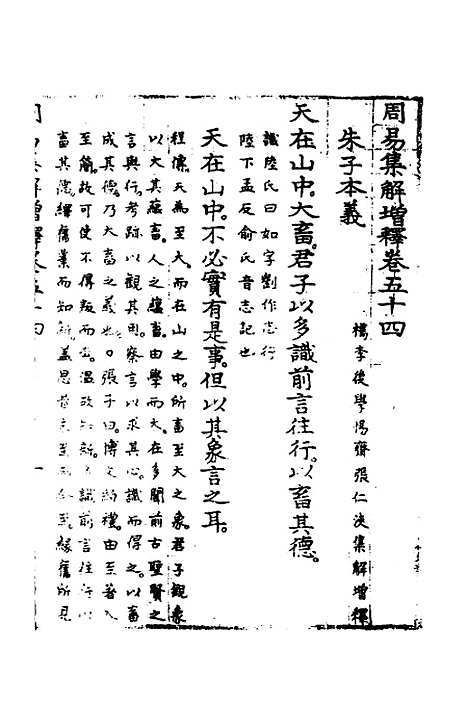 周易集解增釋卷五十四
檇李後學惕齋張仁浹集解增釋
朱子本義
天在山中。大畜。君子以多識前言往行。以畜其德。
識陸氏曰如字劉作志行
陸下孟反俞氏音志記也
天在山中。不必實有是事。但以其象言之耳。
程傳。天為至大。而在山之中。所畜至大之象。君子觀象
以大其蘊畜。人之蘊畜。由學而大。在多聞前古聖賢之
言與行。考跡以觀其用。察言以求其心。識而得之。以畜
成其德。乃大畜之義也。○張子曰。博文約禮。由至著入
至簡。故可使不得叛而去。溫故知新。多識前言往行以
畜其德。繹舊業而知新。蓋思昔未至而今至。緣舊所見